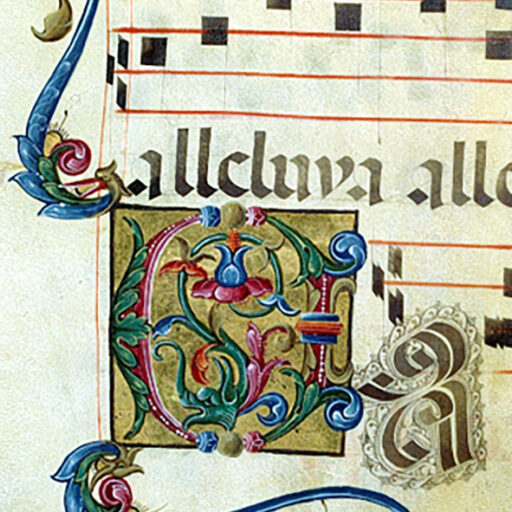 alleluya alle
a